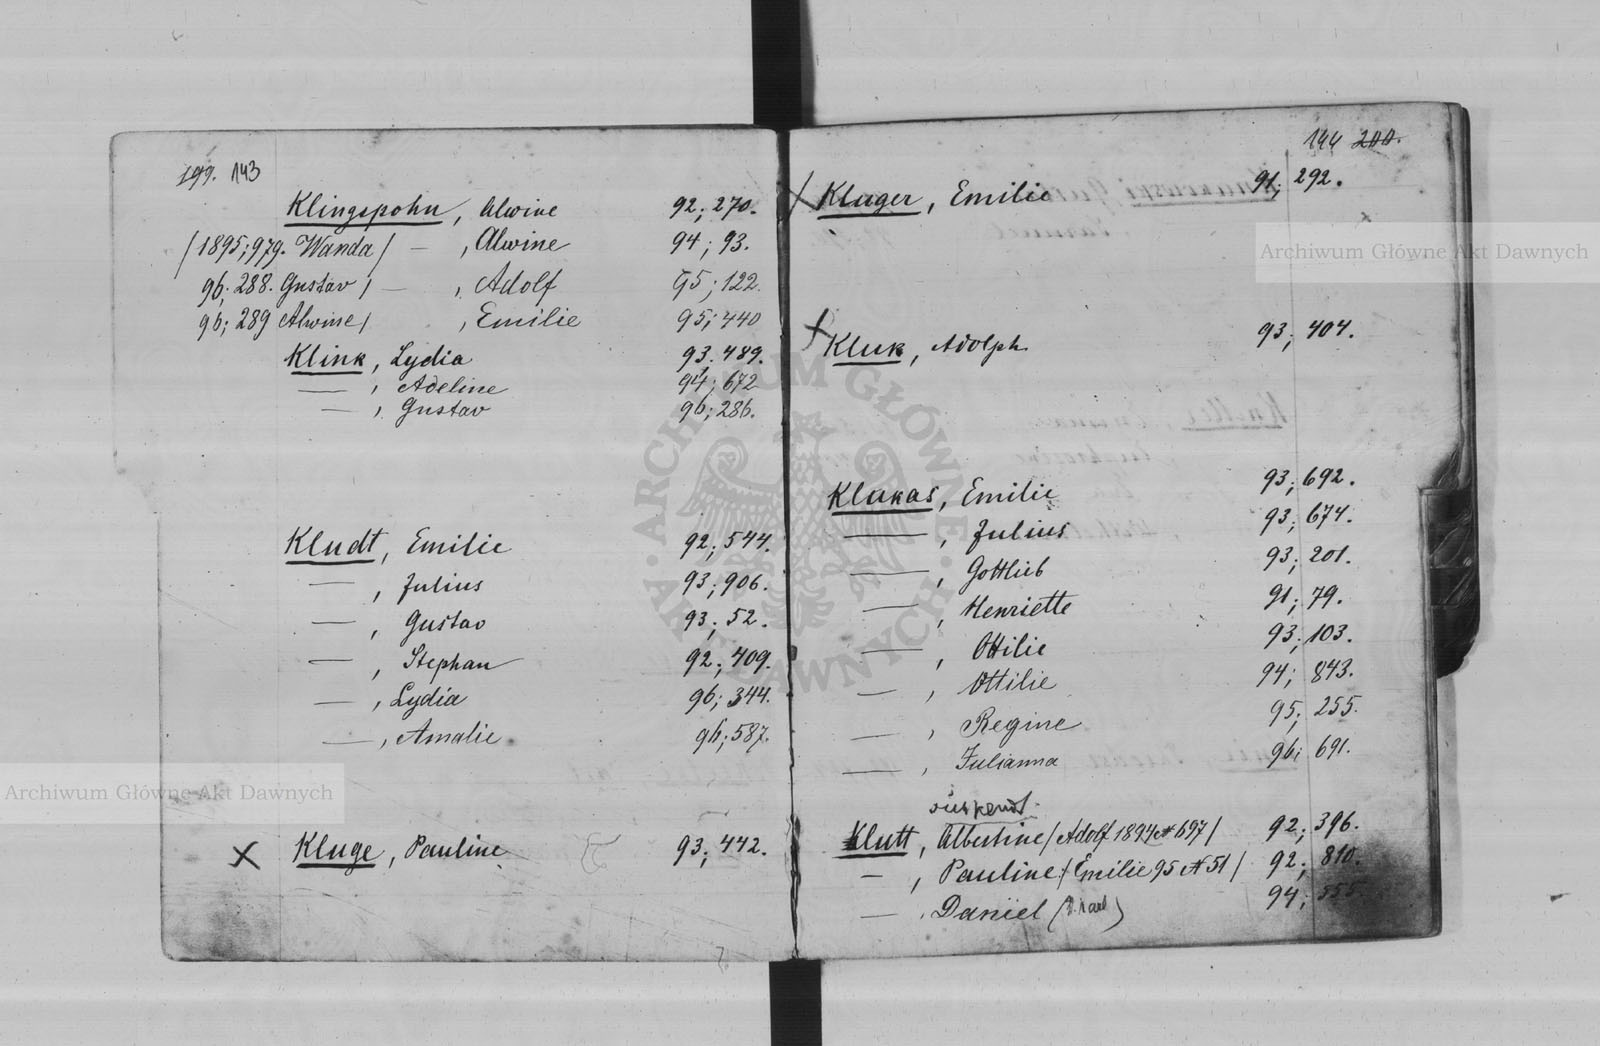 199. 143
Klingspohn, Alwine 92; 270.
/1895; 979. Wanda/ — , Alwine 94; 93.
96; 288. Gustav/ — , Adolf 95; 122.
96; 289 Alwine/ , Emilie 95; 440
Klink, Lydia 93. 489.
— , Adeline 94; 672
— , Gustav 96; 286.
Kludt, Emilie 92; 544.
— , Julius 93; 906.
— , Gustav 93; 52.
— , Stephan 92; 409.
— , Lydia 96; 344.
— , Amalie 96; 587.
x Kluge, Pauline 93; 442.
144 200.
x Kluger, Emilie 91; 292.
x Kluk, Adolph 93; 404.
Klukas, Emilie 93; 692.
— , Julius 93; 674.
— , Gottlieb 93; 201.
— , Henriette 91; 79.
— , Ottilie 93; 103.
— , Ottilie 94; 843.
— , Regine 95; 255.
— , Julianna 96; 691.
Klutt, Albertine /Adolf 1894 № 697/ 92; 396.
— , Pauline / Emilie 95 № 51/ 92; 810.
— , Daniel 94; 555.
Archiwum Główne Akt Dawnych
Archiwum Główne Akt Dawnych
ARCHIWUM GŁÓWNE AKT DAWNYCH